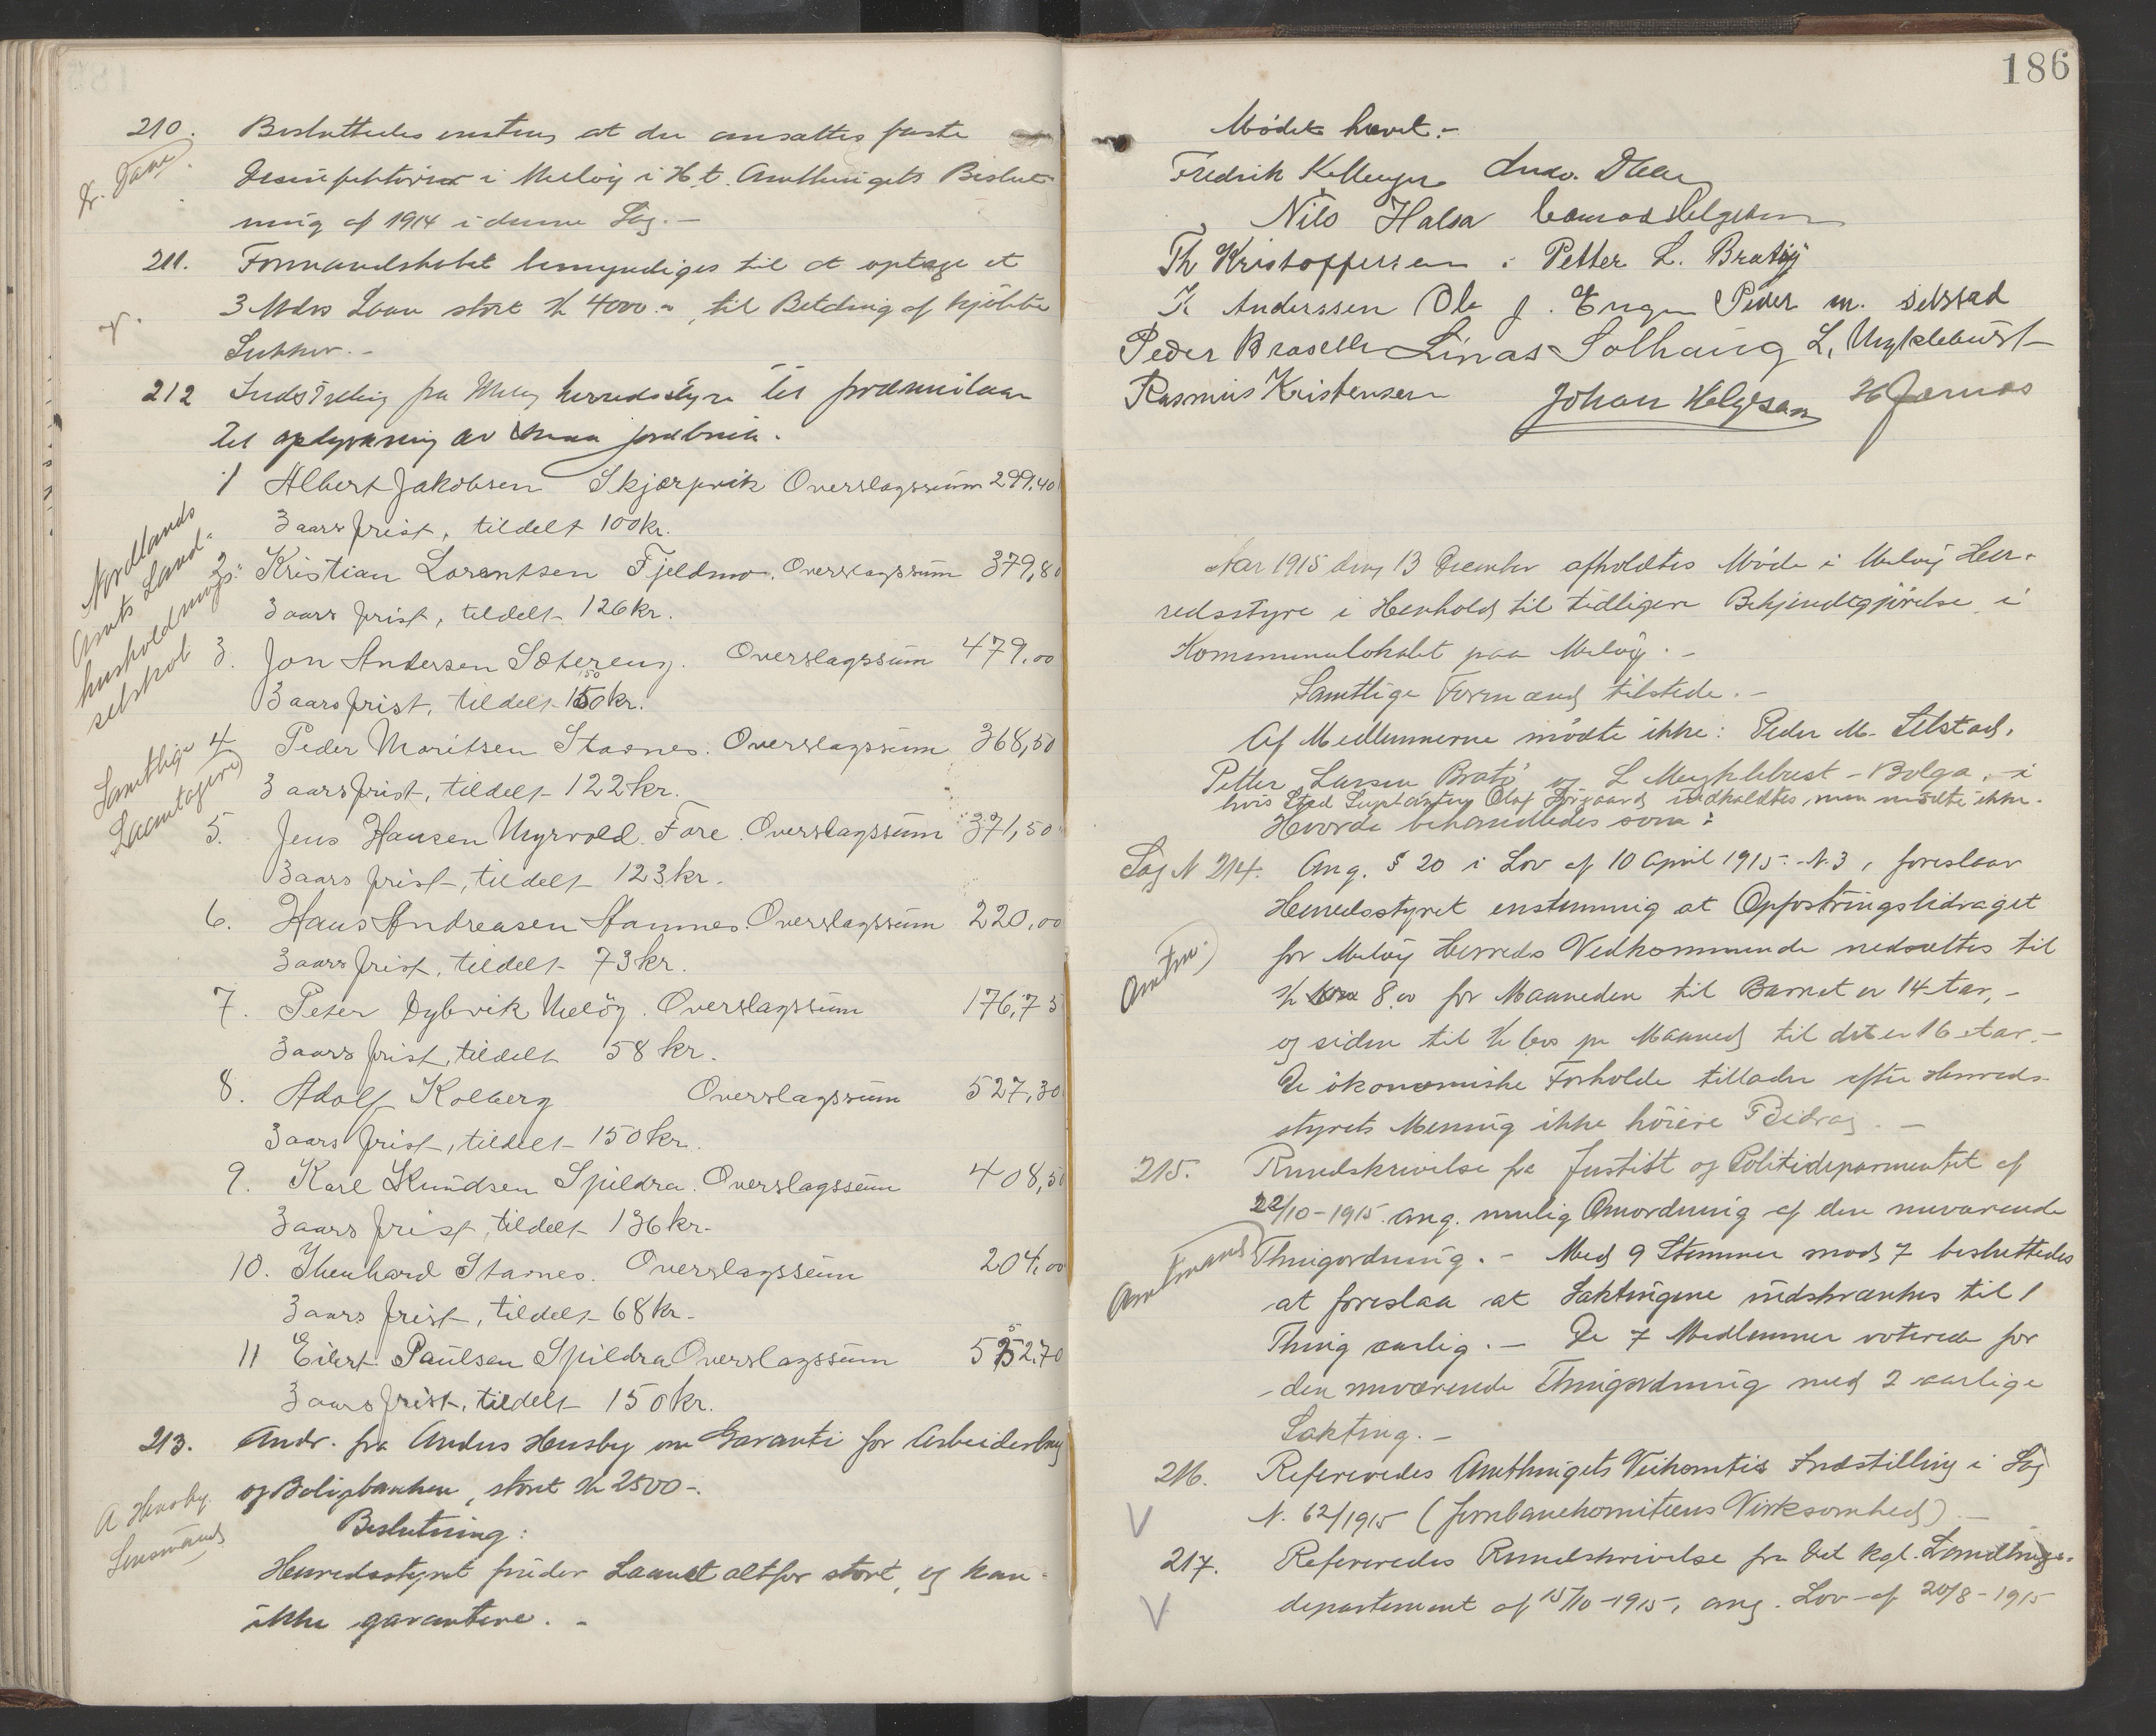 210. Besluttedes enstem. at der ansættes faste
Dr. Daae
Desinfektører i Melöy i H. t. Amtthingets Beslut-
ning af 1914 i denne Sag. –
211. Formandskabet bemyndiges til at optage et
3 Mdrs Laan stort Kr 4000.-, til Betaling af kjöbte
Sukker. –
212 Indstilling fra Melöy herredsstyre til præmielaan
til opdyrkning av smaa jordbruk.
Nordlands
Amts Land-
husholdnings-
selskab
Samtlige
Laantagere
1 Albert Jakobsen Skjærpvik Overslagssum 299,40
3 aars frist, tildelt 100 kr.
2. Kristian Lorentsen Fjeldmo. Overslagssum 379,80
3 aars frist, tildelt 126 kr.
3. Jon Andersen Sætereng. Overslagssum 479.00
3 aars frist, tildelt 150 kr.
4 Peder Moritsen Stornes. Overslagssum 368,50
3 aars frist, tildelt 122 kr.
5. Jens Hansen Myrvold. Fore. Overslagssum 371,50
3 aars frist, tildelt 123 kr.
6. Hans Andreasen Hamnes. Overslagssum 220.00
3 aars frist, tildelt 73 kr.
7. Peter Dybvik Melöy. Overslagssum 176,75
3 aars frist, tildelt 58 kr.
8. Adolf Kolberg Overslagssum 527,30
3 aars frist, tildelt 150 kr.
9. Karl Knudsen Spildra. Overslagssum 408,50
3 aars frist, tildelt 136 kr.
10. Thenhard Stornes. Overslagssum 204,00
3 aars frist, tildelt 68 kr.
11 Eilert Paulsen Spildra Overslagssum 552,70
3 aars frist, tildelt 150 kr.
213. Andr. fra Anders Husby om Garanti for Arbeiderbrug
A. Husby
Lensmand
og Boligbanken, stort Kr 2500-.
Beslutning:
Herredsstyret finder Laanet altfor stort, og kan
ikke garantere. –
186
Mödet hævet. –
Fredrik Andr.
Nils Halsa Conrad Helgesen
Th Kristoffersen Petter L. Bratöy
K Anderssen Ole J. Engen Peder M. Selstad
Peder Linas Solhaug L. Myklebust
Rasmus Kristensen Johan Helgesen
Aar 1915 den 13 December afholdtes Möde i Melöy Her-
redsstyre i Henhold til tidligere Bekjendtgjörelse i
Kommunelokalet paa Melöy. –
Samtlige Formænd tilstede. –
Af Medlemmerne mödte ikke: Peder M. Selstad,
Petter Larsen Bratö og L Myklebust – Bolga, – i
hvis Sted Suplianten Olaf indkaldtes, men mödte ikke.
Hvorda behandledes som:
Sag N 214. Ang. § 20 i Lov af 10 April 1915. N. 3, foreslaar
Herredsstyret enstemmig at Opfostringsbidraget
Amtm.
for Melöy Herreds Vedkommende nedsættes til
Kr 8,00 for Maaneden til Barnet er 14 Aar, –
og siden til Kr 6,00 pr Maaned til det er 16 Aar. –
De ökonomiske Forholde tillader efter Herreds-
styrets Mening ikke höiere Bidrag. –
215. Rundskrivelse fra Justits og Politideparmentet af
22/10-1915 ang. mulig Omordning af den nuværende
Amtmand
Thingordning. – Med 9 Stemmer mod 7 besluttedes
at foreslaa at Saktingene indskrænkes til 1
Thing aarlig. – De 7 Medlemmer voterede for
den nuværende Thingordning med 2 aarlige
Sakting. –
216. Refereredes Amtthingets Veikomites Indstilling i Sag
V
N. 62/1915 (Jernbanekomiteens Virksomhed) –
217. Refereredes Rundskrivelse fra Det kgl. Landbrugs-
V
departement af 15/10-1915, ang. Lov af 20/8-1915